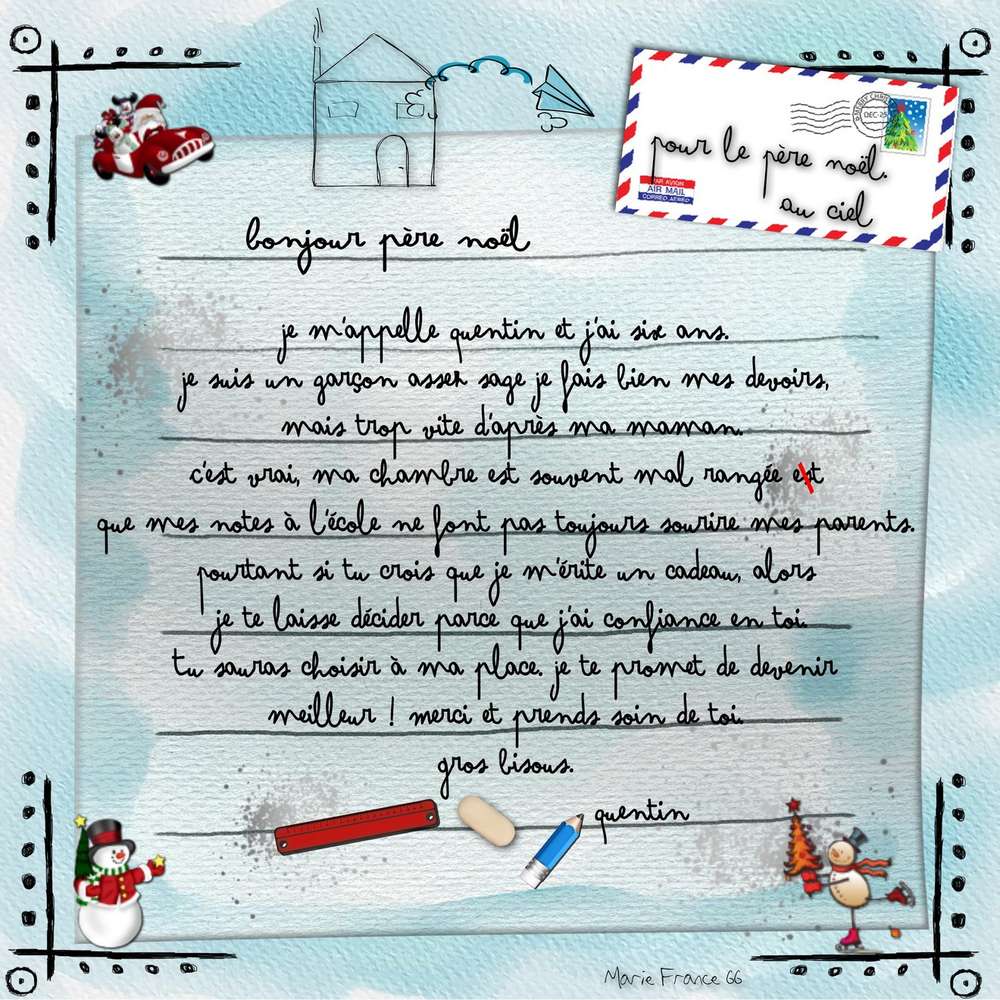 MERRY CHRI
DEC-25
pour le père noël.
au ciel
PAR AVION
AIR MAIL
CORREO AEREO
bonjour père noël
je m'appelle quentin et j'ai six ans.
je suis un garçon assez sage je fais bien mes devoirs,
mais trop vite d'après ma maman.
c'est vrai, ma chambre est souvent mal rangée est
que mes notes à l'école ne font pas toujours sourire mes parents.
pourtant si tu crois que je m'érite un cadeau, alors
je te laisse décider parce que j'ai confiance en toi.
tu sauras choisir à ma place. je te promet de devenir
meilleur ! merci et prends soin de toi.
gros bisous.
quentin
Marie France 66